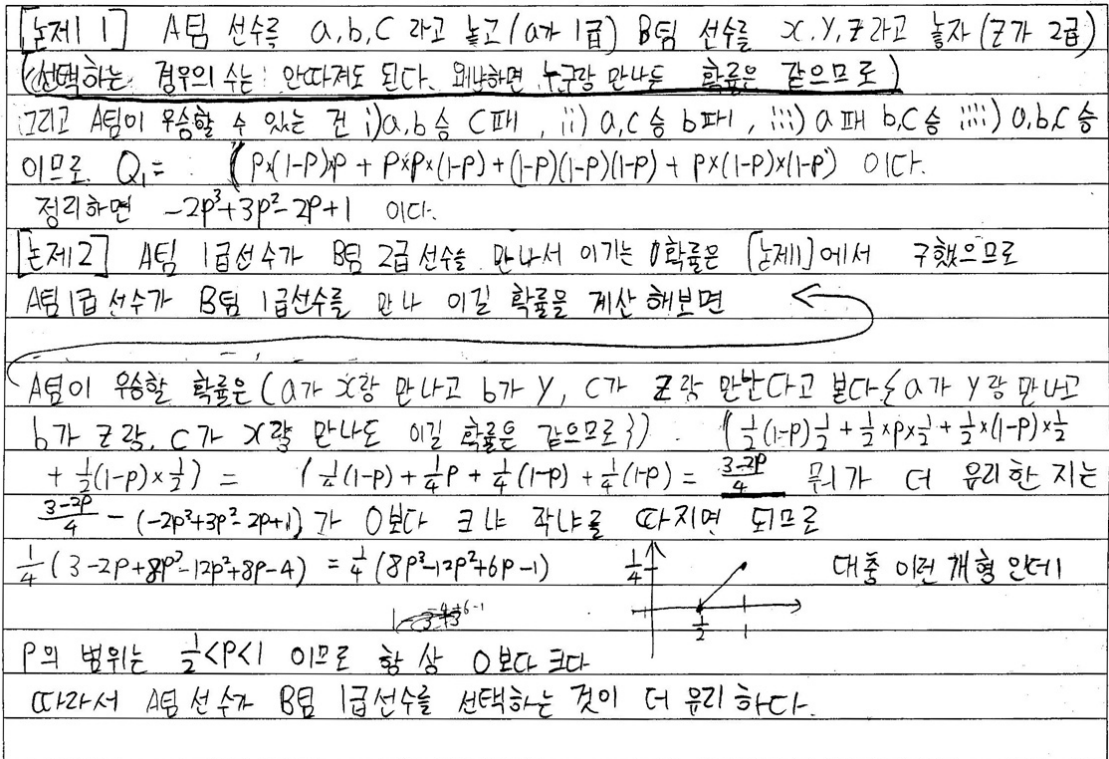 [논제 1] A팀 선수를 a, b, c 라고 놓고 (a가 1급) B팀 선수를 x, y, z라고 놓자 (z가 2급)
(선택하는 경우의 수는 안따져도 된다. 왜냐하면 누구랑 만나든 확률은 같으므로)
그리고 A팀이 우승할 수 있는 건 i) a, b 승 c패, ii) a, c 승 b패, iii) a 패 b, c 승 iiii) a, b, c 승
이므로. Q₁ = (P×(1-P)×P + P×P×(1-P) + (1-P)(1-P)(1-P) + P×(1-P)×(1-P)) 이다.
정리하면 -2p³+3p²-2p+1 이다.
[논제2] A팀 1급선수가 B팀 2급선수를 만나서 이기는 확률은 [논제1]에서 구했으므로
A팀 1급 선수가 B팀 1급선수를 만나 이길 확률을 계산 해보면
A팀이 우승할 확률은 (a가 x랑 만나고 b가 y, c가 z랑 만난다고 본다 {a가 y랑 만나고
b가 z랑, c가 x랑 만나도 이길 확률은 같으므로}). (½(1-P)½ + ½×P×½ + ½×(1-P)×½
+ ½(1-P)×½) = (¼(1-P) + ¼P + ¼(1-P) + ¼(1-P) = (3-2P)/4 뭐가 더 유리한 지는
(3-2P)/4 - (-2p³+3p²-2p+1) 가 0보다 크냐 작냐를 따지면 되므로
¼(3-2P+8p³-12p²+8p-4) = ¼(8p³-12p²+6p-1) ¼ ½ 1 대충 이런 개형 인데
P의 범위는 ½<P<1 이므로 항상 0보다 크다
따라서 A팀 선수가 B팀 1급선수를 선택하는 것이 더 유리하다.